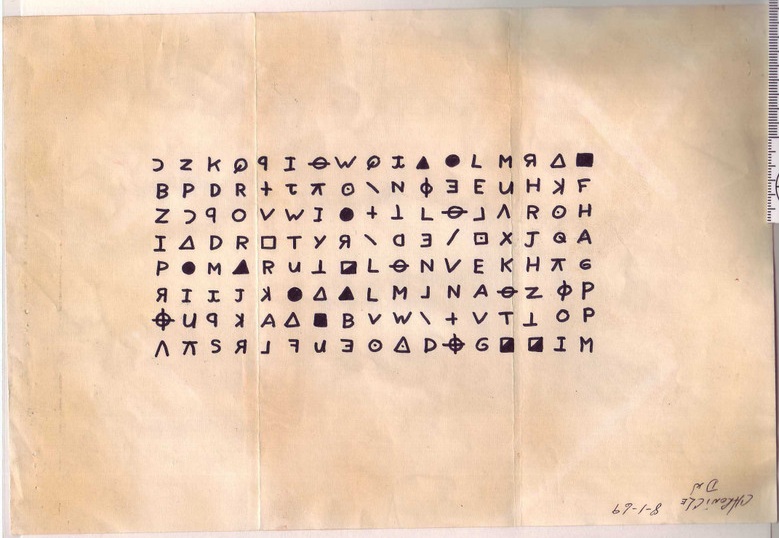 Ɔ Z K Q ꟼ I ⊖ W Q I ▲ ● L M Я △ ■
B P D R + τ π ⊙ \ N ϕ Ǝ E U H ꓘ F
Z Ɔ ꟼ O V W I ● + ⊥ L ⊖ ⅃ Λ R ⊙ H
I △ D R □ T Y Я \ ᗡ Ǝ / ⊡ X J Q A
P ● M ▲ R U ⊥ ◪ L ⊖ N V E K H π G
Я I I J ꓘ ● △ ▲ L M ⅃ N A ⊖ Z ϕ P
⌖ U ꟼ ꓘ A △ ■ B V W \ + V T ⊥ O P
Λ π S Я ⅃ ꟻ U Ǝ ⊙ ◬ D ⌖ G ◪ ◪ I M
CHRONICLE
8-1-69